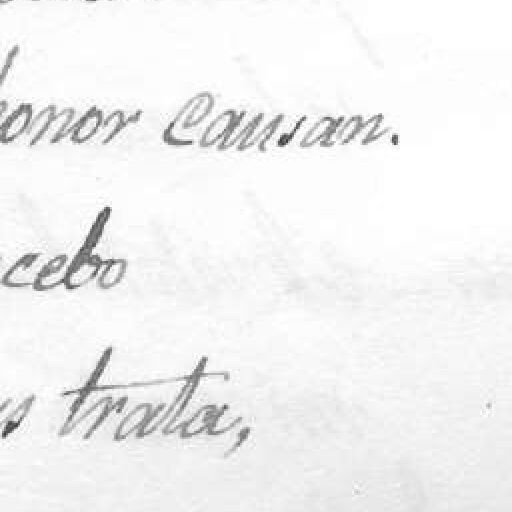 honor causan.
cebo
trata,